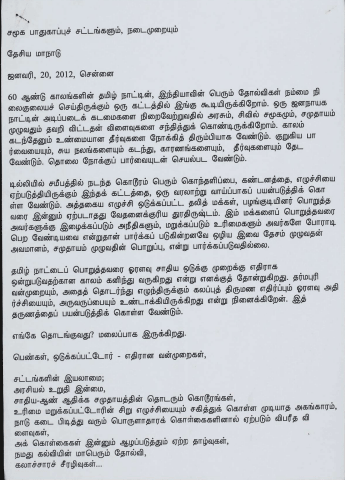 சமூக பாதுகாப்புச் சட்டங்களும், நடைமுறையும்
தேசிய மாநாடு
ஜனவரி, 20, 2012, சென்னை
60 ஆண்டு காலங்களின் தமிழ் நாட்டின், இந்தியாவின் பெரும் தோல்விகள் நம்மை நி
லைகுலையச் செய்திருக்கும் ஒரு கட்டத்தில் இங்கு கூடியிருக்கிறோம். ஒரு ஜனநாயக
நாட்டின் அடிப்படைக் கடமைகளை நிறைவேற்றுவதில் அரசும், சிவில் சமூகமும், சமுதாயம்
முழுவதும் தவறி விட்டதன் விளைவுகளை சந்தித்துக் கொண்டிருக்கிறோம். காலம்
கடந்தேனும் உண்மையான தீர்வுகளை நோக்கித் திரும்பியாக வேண்டும். குறுகிய பா
ர்வையையும், சுய நலங்களையும் கடந்து, காரணங்களையும், தீர்வுகளையும் தேட
வேண்டும். தொலை நோக்குப் பார்வையுடன் செயல்பட வேண்டும்.
டில்லியில் சமீபத்தில் நடந்த கொடூரம் பெரும் கொந்தளிப்பை, கண்டனத்தை, எழுச்சியை
ஏற்படுத்தியிருக்கும் இந்தக் கட்டத்தை, ஒரு வரலாற்று வாய்ப்பாகப் பயன்படுத்திக் கொ
ள்ள வேண்டும். அத்தகைய எழுச்சி ஒடுக்கப்பட்ட தலித் மக்கள், பழங்குடியினர் பொறுத்த
வரை இன்னும் ஏற்படாதது வேதனைக்குரிய துரதிருஷ்டம். இம் மக்களைப் பொறுத்தவரை
அவர்களுக்கு இழைக்கப்படும் அநீதிகளும், மறுக்கப்படும் உரிமைகளும் அவர்களே போராடி
பெற வேண்டியவை என்றுதான் பார்க்கப் படுகின்றனவே ஒழிய இவை தேசம் முழுவதன்
அவமானம், சமுதாயம் முழுவதின் பொறுப்பு, என்று பார்க்கப்படுவதில்லை.
தமிழ் நாட்டைப் பொறுத்தவரை ஓரளவு சாதிய ஒடுக்கு முறைக்கு எதிராக
ஒன்றுபடுவதற்கான காலம் கனிந்து வருகிறது என்று எனக்குத் தோன்றுகிறது. தர்மபுரி
வன்முறையும், அதைத் தொடர்ந்து எழுந்திருக்கும் கலப்புத் திருமண எதிர்ப்பும் ஓரளவு அதி
ர்ச்சியையும், அருவருப்பையும் உண்டாக்கியிருக்கிறது என்று நினைக்கிறேன். இத்
தருணத்தைப் பயன்படுத்திக் கொள்ள வேண்டும்.
எங்கே தொடங்குவது? மலைப்பாக இருக்கிறது.
பெண்கள், ஒடுக்கப்பட்டோர் - எதிரான வன்முறைகள்,
சட்டங்களின் இயலாமை;
அரசியல் உறுதி இன்மை,
சாதிய-ஆண் ஆதிக்க சமுதாயத்தின் தொடரும் கொடூரங்கள்,
உரிமை மறுக்கப்பட்டோரின் சிறு எழுச்சியையும் சகித்துக் கொள்ள முடியாத அகங்காரம்,
நாடு கடை பிடித்து வரும் பொருளாதாரக் கொள்கைகளினால் ஏற்படும் விபரீத வி
ளைவுகள்,
அக் கொள்கைகள் இன்னும் ஆழப்படுத்தும் ஏற்ற தாழ்வுகள்,
நமது கல்வியின் மாபெரும் தோல்வி,
கலாச்சாரச் சீரழிவுகள்...